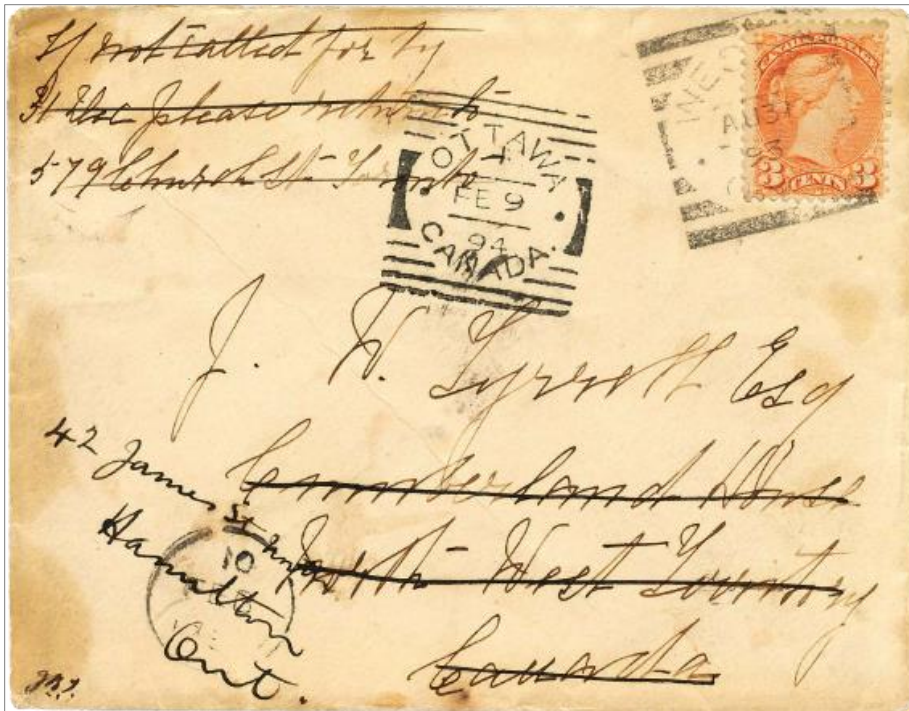 If not called for by
31 Dec please return to
579 Church St. Toronto
OTTAWA
FE 9
94
CANADA
AU 31
CANADA POSTAGE
3 CENTS 3
J. W. Tyrrell Esq
Cumberland House
North West Territory
Canada
42 James St N
Hamilton
Ont.
10